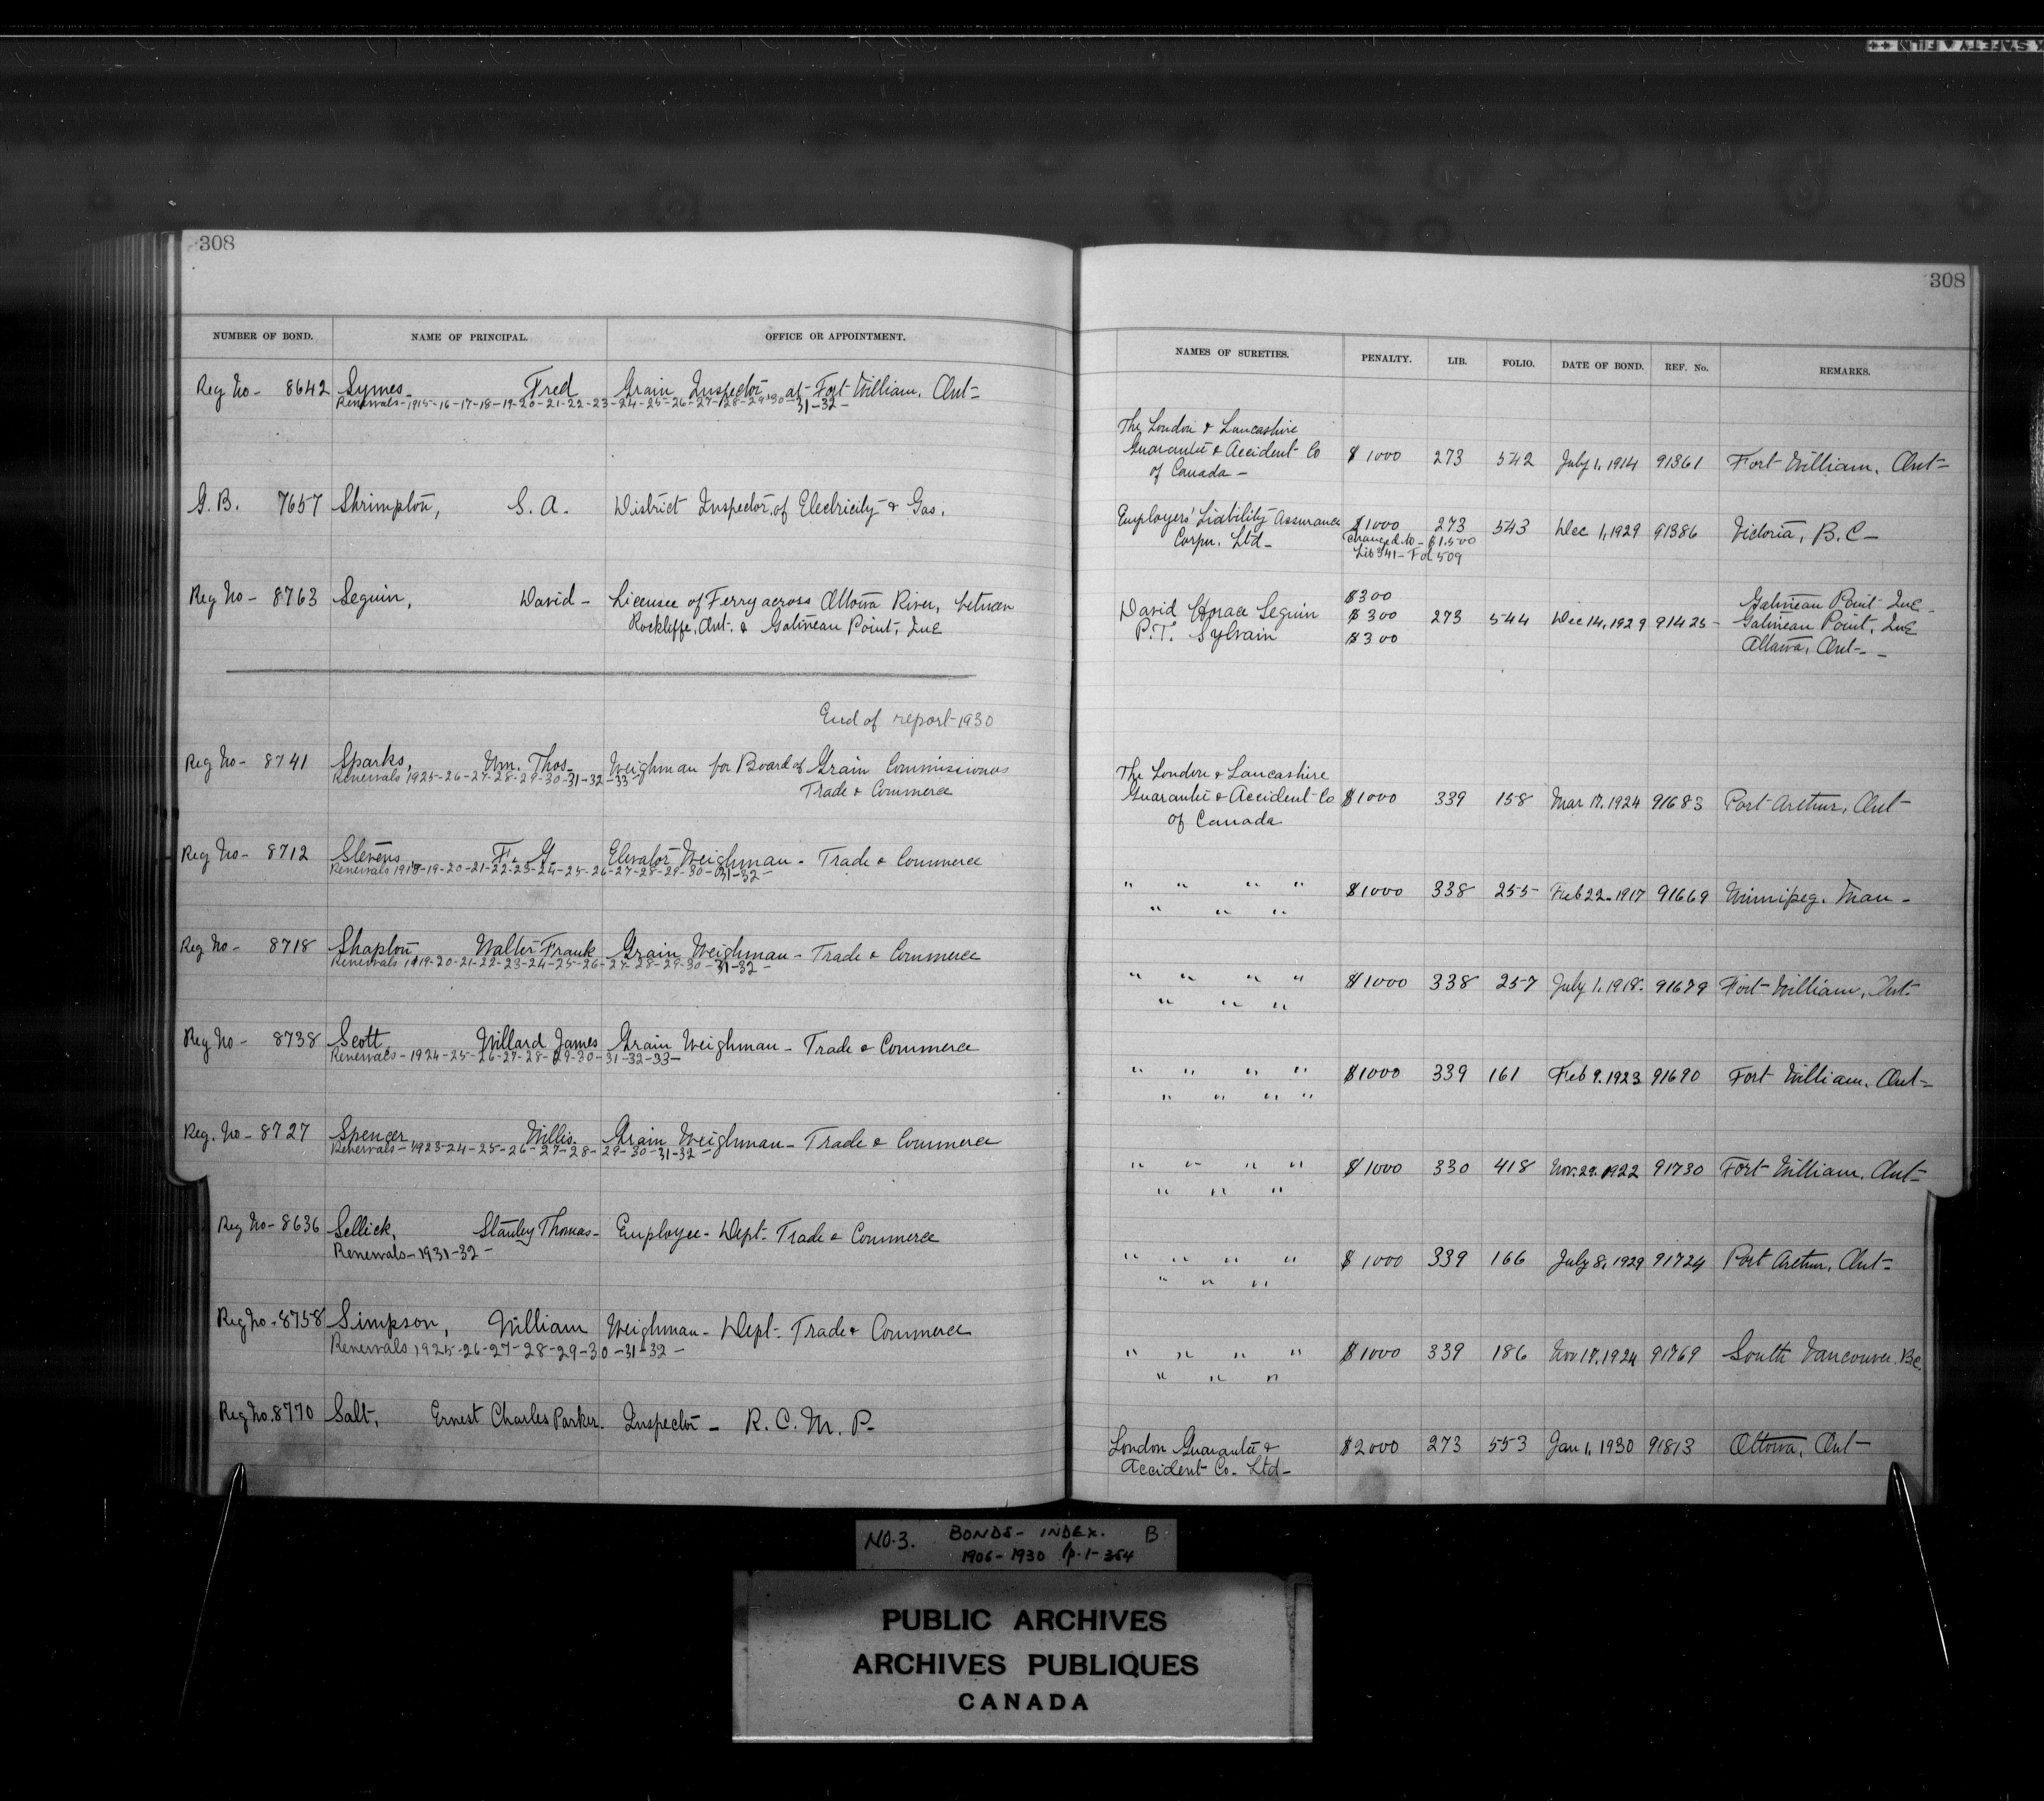 SAFETY FILM
308
308
NUMBER OF BOND. NAME OF PRINCIPAL. OFFICE OR APPOINTMENT.
NAMES OF SURETIES. PENALTY. LIB. FOLIO. DATE OF BOND. REF. No. REMARKS.
Reg No - 8642 Symes Fred Grain Inspector at Fort William, Ont-
Renewals-1915-16-17-18-19-20-21-22-23-24-25-26-27-28-29-30-31-32-
The London & Lancashire
Guarantee & Accident Co $1000 273 542 July 1, 1914 91361 Fort William, Ont-
of Canada -
G. B. 7657 Shrimpton, S. A. District Inspector, of Electricity & Gas.
Employers' Liability Assurance $1000 273 543 Dec 1, 1929 91386 Victoria, B.C-
Corpn. Ltd- Changed to - $1.500
Lib 341 - Fol 509
Reg No - 8763 Seguin, David - Licensee of Ferry across Ottawa River, between
Rockliffe, Ont. & Gatineau Point, Que
$300 Gatineau Point Que -
David Horace Seguin $300 273 544 Dec 14, 1929 91425 - Gatineau Point, Que
P.T. Sylvain $300 Ottawa, Ont- -
End of report-1930
Reg No - 8741 Sparks, Wm. Thos. Weighman for Board of Grain Commissioners
Renewals 1925-26-27-28-29-30-31-32-33- Trade & Commerce
The London & Lancashire
Guarantee & Accident Co $1000 339 158 Mar 17, 1924 91683 Port Arthur, Ont-
of Canada
Reg No - 8712 Stevens F. G. Elevator Weighman - Trade & Commerce
Renewals 1918-19-20-21-22-23-24-25-26-27-28-29-30-31-32-
" " " " $1000 338 255- Feb 22-1917 91669 Winnipeg, Man -
" " "
Reg No - 8718 Shapton Walter Frank Grain Weighman - Trade & Commerce
Renewals 1919-20-21-22-23-24-25-26-27-28-29-30-31-32-
" " " " $1000 338 257 July 1, 1918. 91679 Fort William, Ont.
" " "
Reg No - 8738 Scott Willard James Grain Weighman - Trade & Commerce
Renewals-1924-25-26-27-28-29-30-31-32-33-
" " " " $1000 339 161 Feb 9, 1923 91690 Fort William, Ont-
" " " "
Reg. No - 8727 Spencer Willis. Grain Weighman - Trade & Commerce
Renewals-1923-24-25-26-27-28-29-30-31-32-
" " " " $1000 330 418 Nov. 29, 1922 91730 Fort William, Ont-
" " "
Reg No - 8636 Sellick, Stanley Thomas- Employee - Dept. Trade & Commerce
Renewals-1931-32-
" " " " $1000 339 166 July 8, 1929 91724 Port Arthur, Ont-
" " "
Reg No - 8758 Simpson, William Weighman - Dept. Trade & Commerce
Renewals 1925-26-27-28-29-30-31-32-
" " " " $1000 339 186 Nov 17, 1924 91769 South Vancouver, B.C.
" " "
Reg No. 8770 Salt, Ernest Charles Parker. Inspector - R. C. M. P-
London Guarantee & $2000 273 553 Jan 1, 1930 91813 Ottawa, Ont-
Accident Co. Ltd-
NO. 3. BONDS - INDEX. B
1906-1930 p. 1-354
PUBLIC ARCHIVES
ARCHIVES PUBLIQUES
CANADA